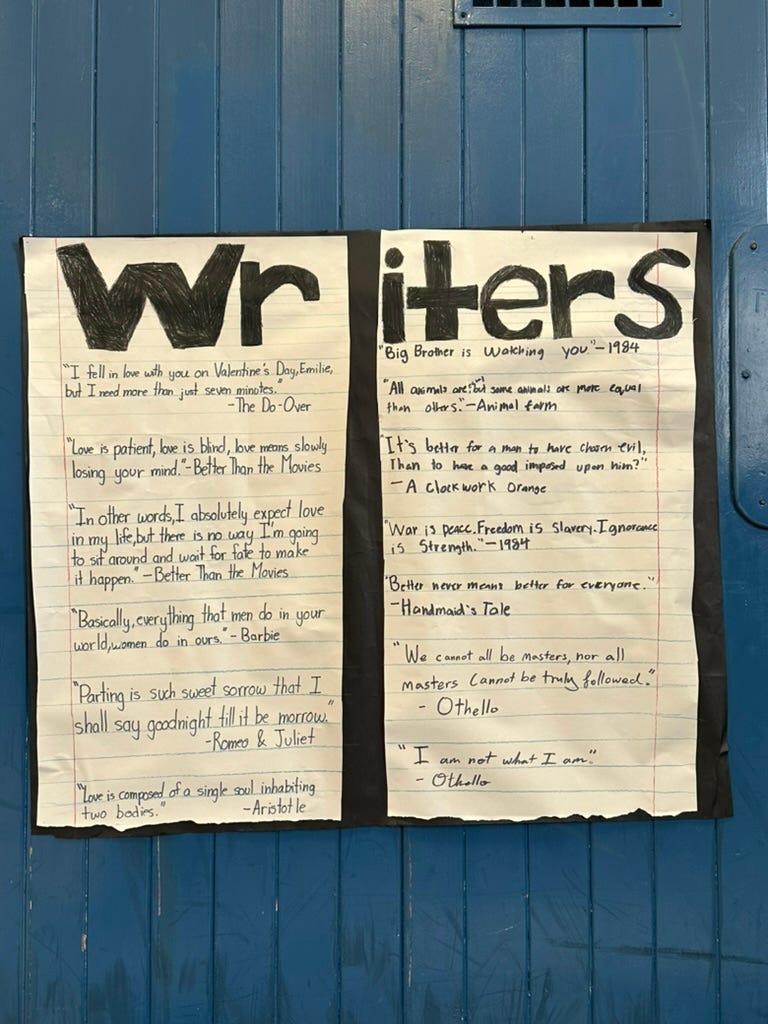 Writers
"I fell in love with you on Valentine's Day, Emilie,
but I need more than just seven minutes."
-The Do-Over
"Love is patient, love is blind, love means slowly
losing your mind."-Better Than the Movies
"In other words, I absolutely expect love
in my life, but there is no way I'm going
to sit around and wait for fate to make
it happen." -Better Than the Movies
"Basically, everything that men do in your
world, women do in ours." - Barbie
"Parting is such sweet sorrow that I
shall say goodnight till it be morrow."
-Romeo & Juliet
"Love is composed of a single soul inhabiting
two bodies." -Aristotle
"Big Brother is Watching you"-1984
"All animals are but some animals are more equal
than others."-Animal farm
"It's better for a man to have chosen evil,
Than to have a good imposed upon him?"
-A Clockwork Orange
"War is peace. Freedom is Slavery. Ignorance
is Strength."-1984
"Better never means better for everyone."
-Handmaid's Tale
"We cannot all be masters, nor all
masters Cannot be truly followed."
- Othello
"I am not what I am"
- Othello